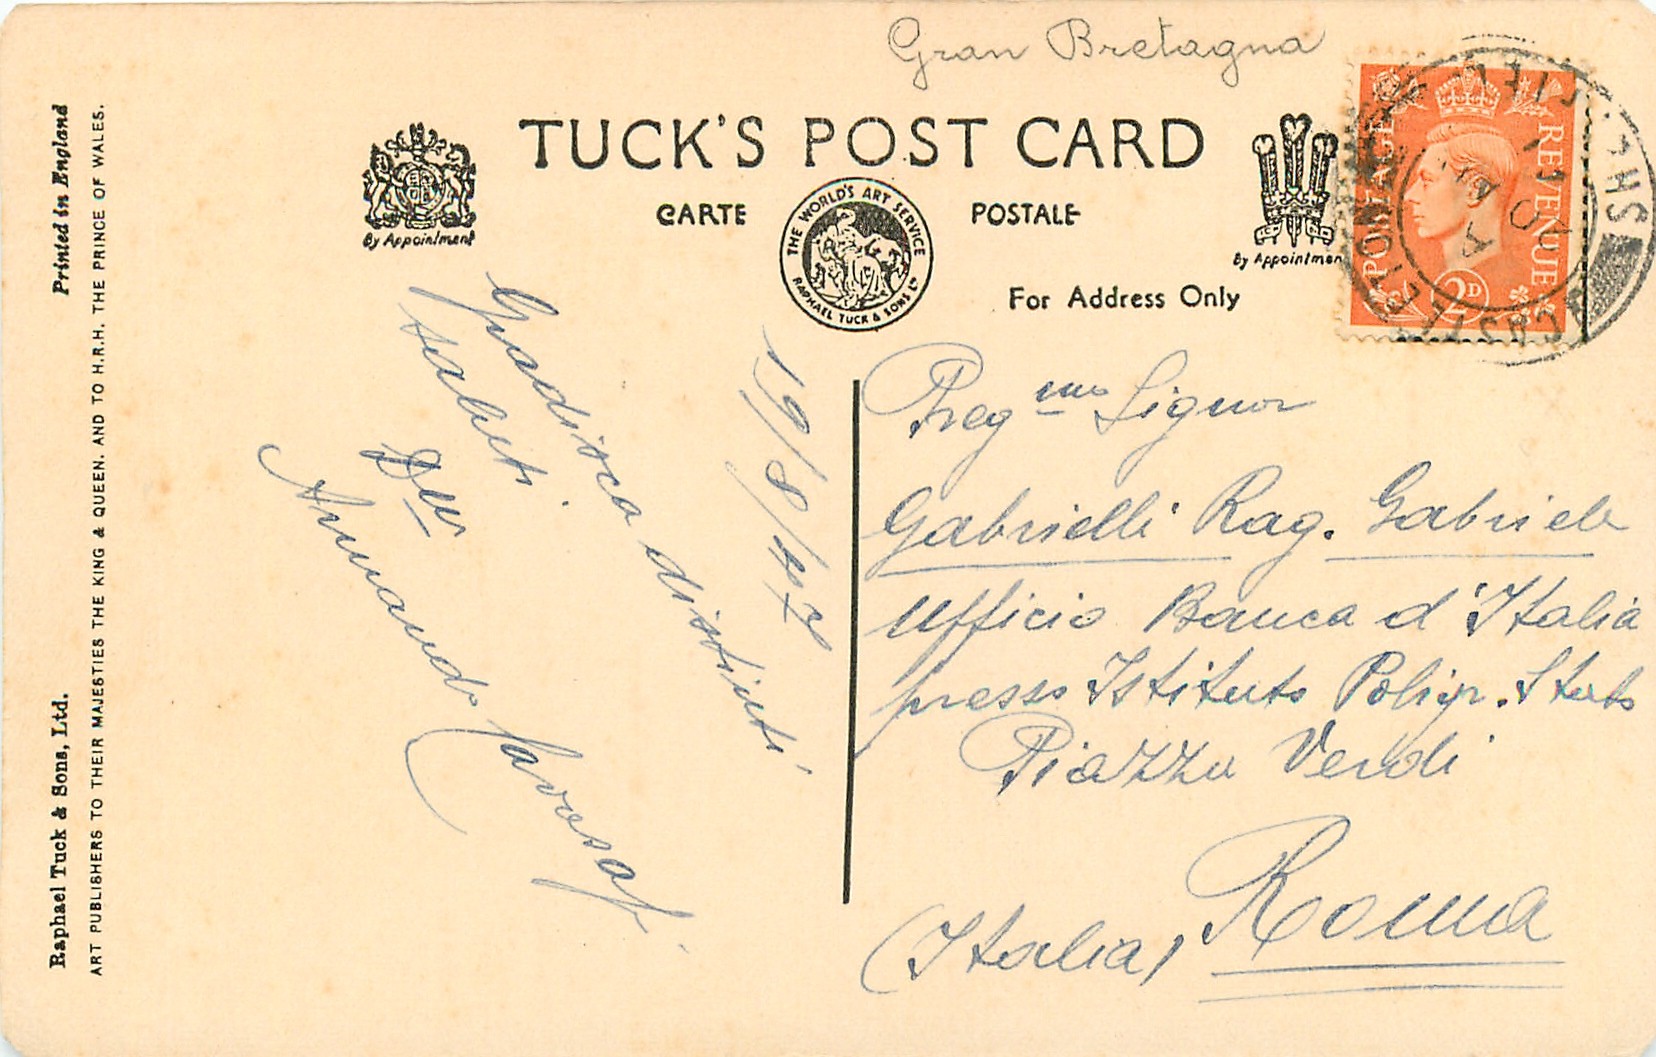 Gran Bretagna
TUCK'S POST CARD
CARTE POSTALE
By Appointment
THE WORLD'S ART SERVICE
RAPHAEL TUCK & SONS LTD
By Appointmen
For Address Only
POSTAGE REVENUE
2D
Printed in England
Raphael Tuck & Sons, Ltd.
ART PUBLISHERS TO THEIR MAJESTIES THE KING & QUEEN, AND TO H.R.H. THE PRINCE OF WALES.
19/8/47
Gradisca distinti
saluti
Dev
Armando
Pregmo Signor
Gabrielli Rag. Gabriele
Ufficio Banca d'Italia
presso Istituto Poligr. Stato
Piazza Verdi
Roma
(Italia)